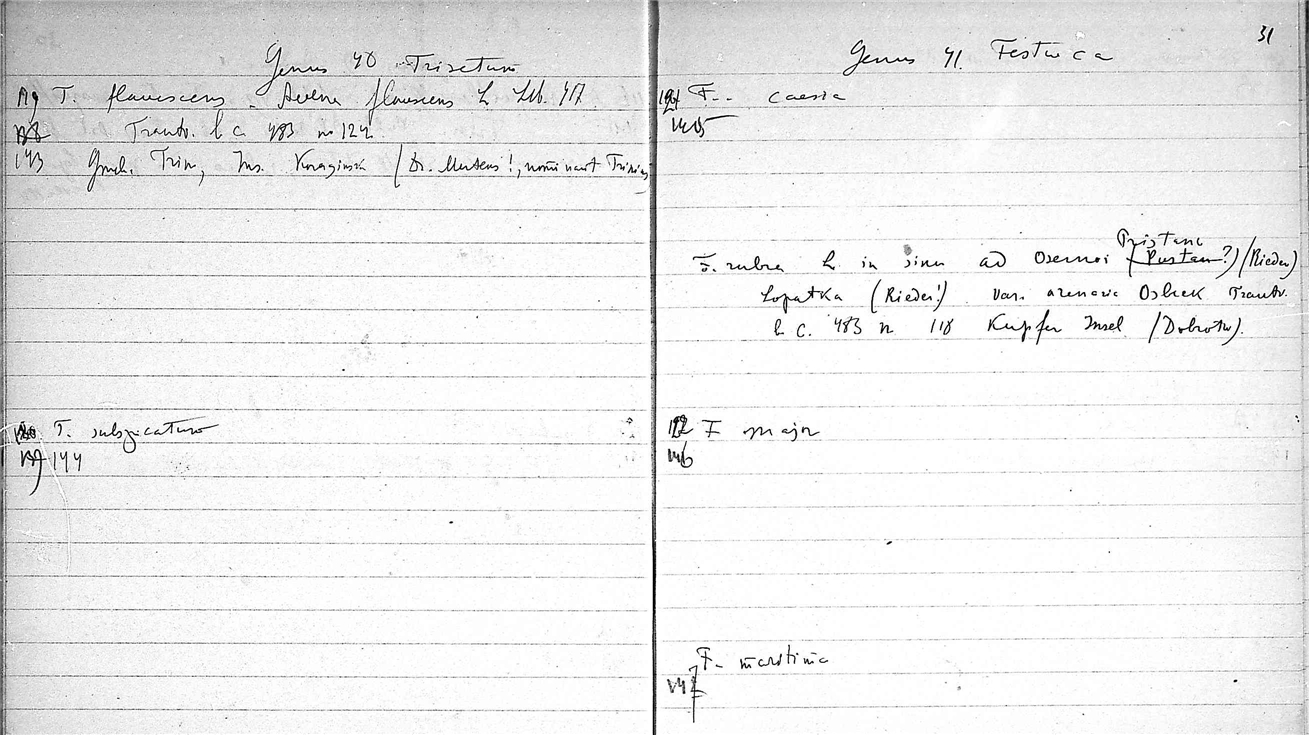 Genus 40 Trisetum
119 T. flavescens - Avena flavescens L. Ldb. 417
Trautv. l. c. 483 no 124
143 Gmel. Trin, Ins. Koraginsk (Dr. Mertens!, nominavit Trinius
T. subspicatum
144
31
Genus 41. Festuca
121 F. caesia
145
Tristane
F. rubra L. in sinu ad Osernoi (Pustan?) (Rieder)
Lopatka (Rieder!) var. arenaria Osbeck Trautv.
l. c. 483 n 118 Kupfer Insel (Dobrotw).
122 F major
146
F. maritima
147